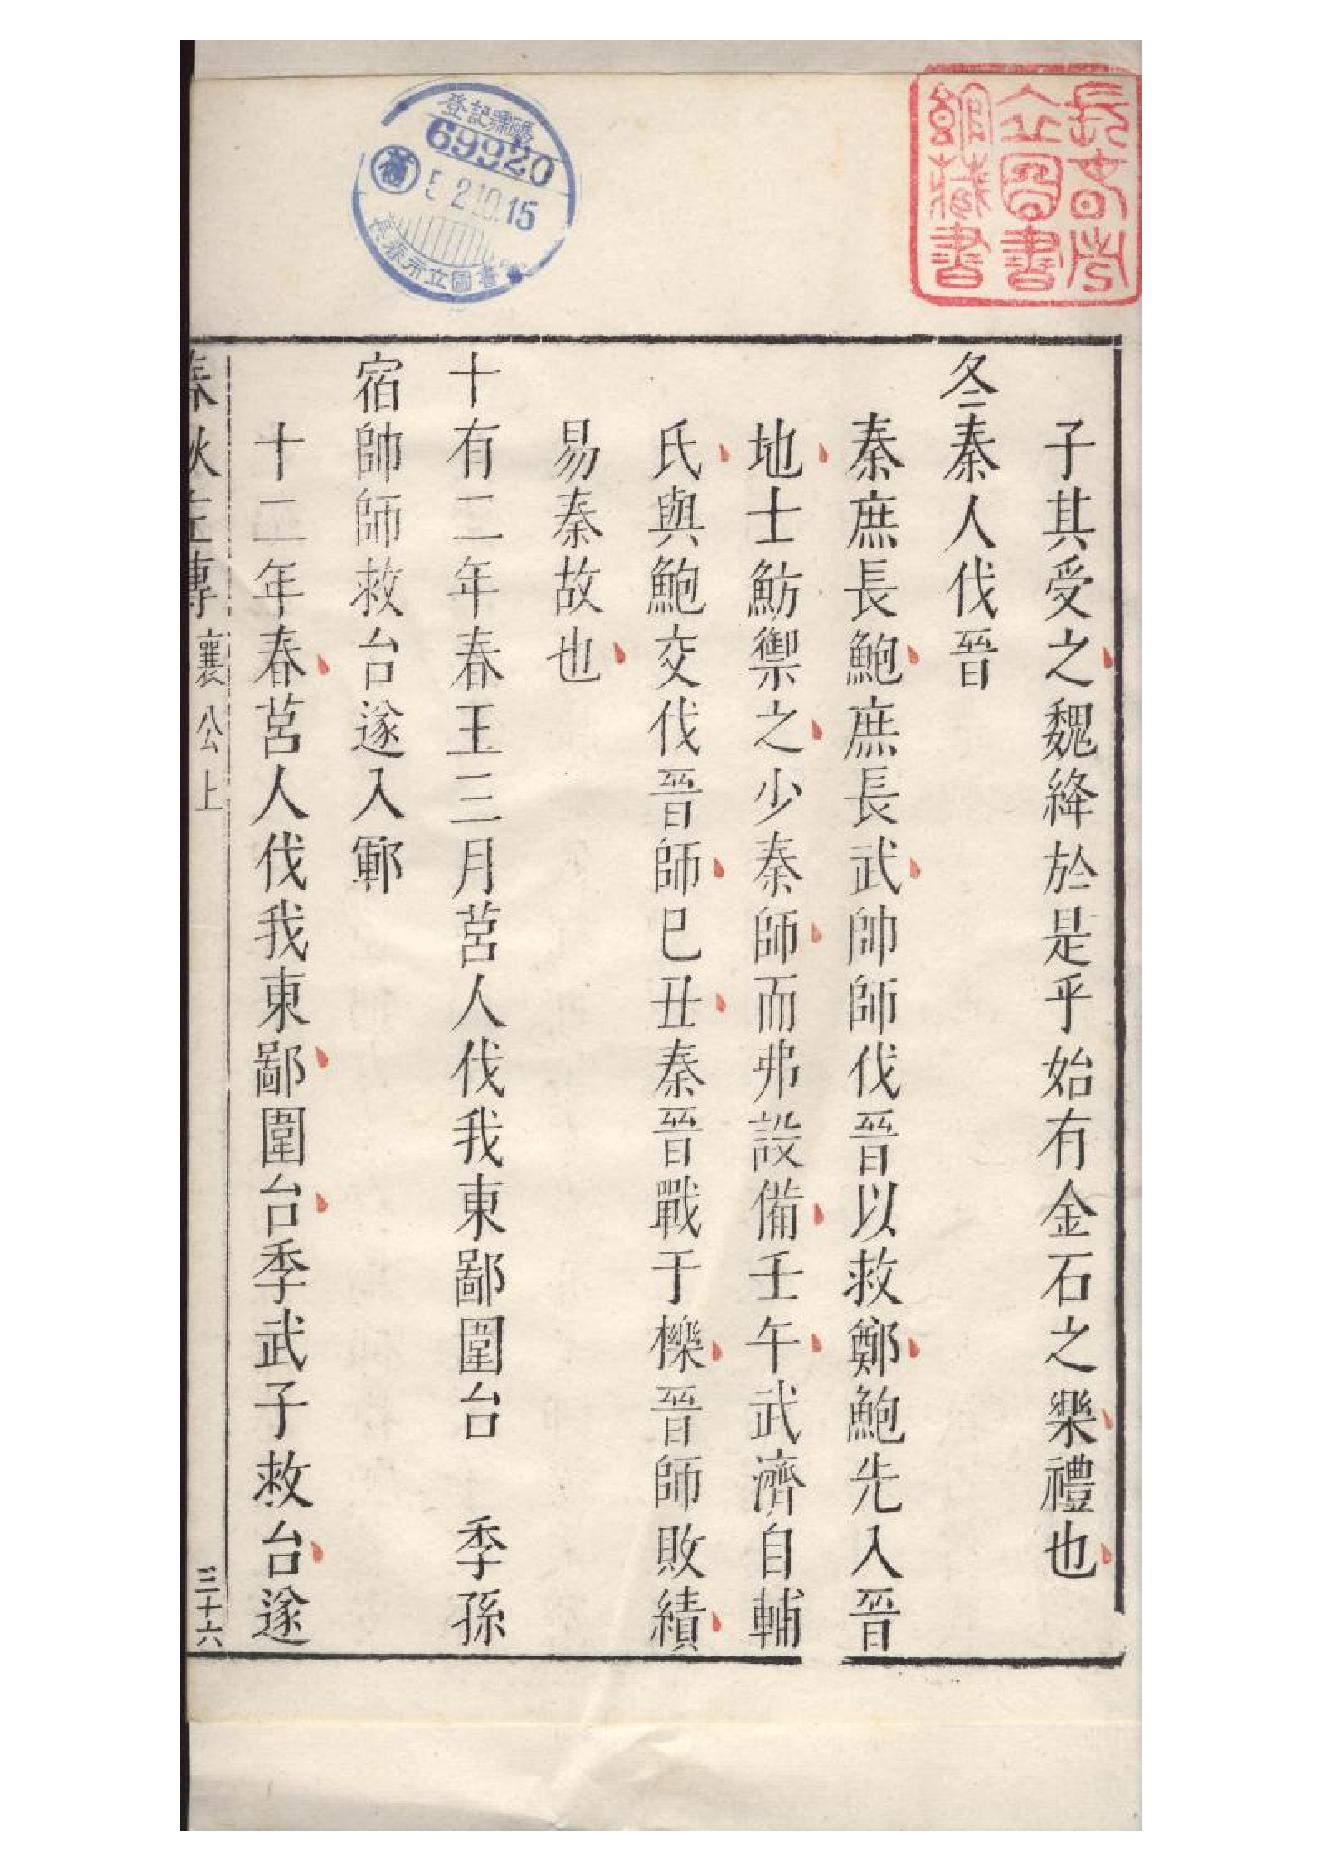 長春市
立圖書
館藏書
登記號碼
69920
舊
5 2.10.15
長春市立圖書
子其受之魏絳於是乎始有金石之樂禮也
冬秦人伐晉
秦庶長鮑庶長武帥師伐晉以救鄭鮑先入晉
地士魴禦之少秦師而弗設備壬午武濟自輔
氏與鮑交伐晉師己丑秦晉戰于櫟晉師敗績
易秦故也
十有二年春王三月莒人伐我東鄙圍台　季孫
宿帥師救台遂入鄆
十二年春莒人伐我東鄙圍台季武子救台遂
春秋左傳 襄公上 三十六